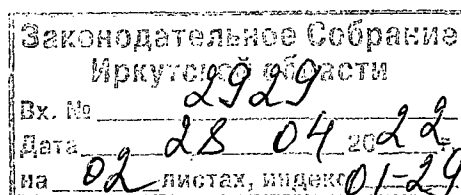 Законодательное Собрание
Иркутской области
Вх. № 2929
Дата 28 04 2022 г.
на 02 листах, индекс 01-24